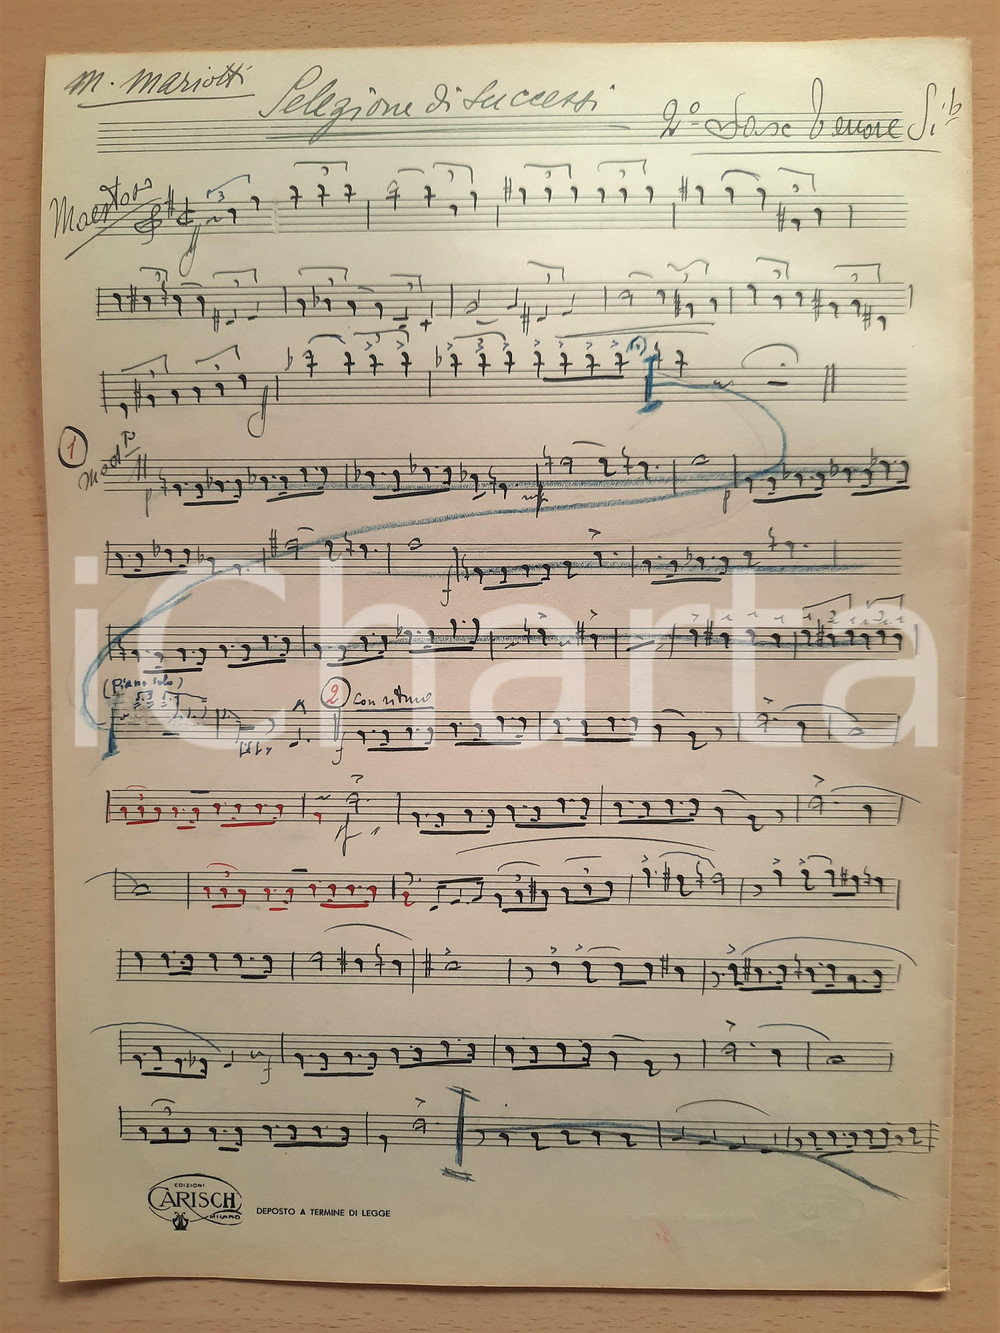 M. Mariotti
Selezione di Successi
2º Sax Tenore Si b
Maestoso
3
1
Modto
p
mf
p
f
(Piano solo)
2
con ritmo
f
f
iCharta
EDIZIONI
CARISCH
MILANO
DEPOSTO A TERMINE DI LEGGE